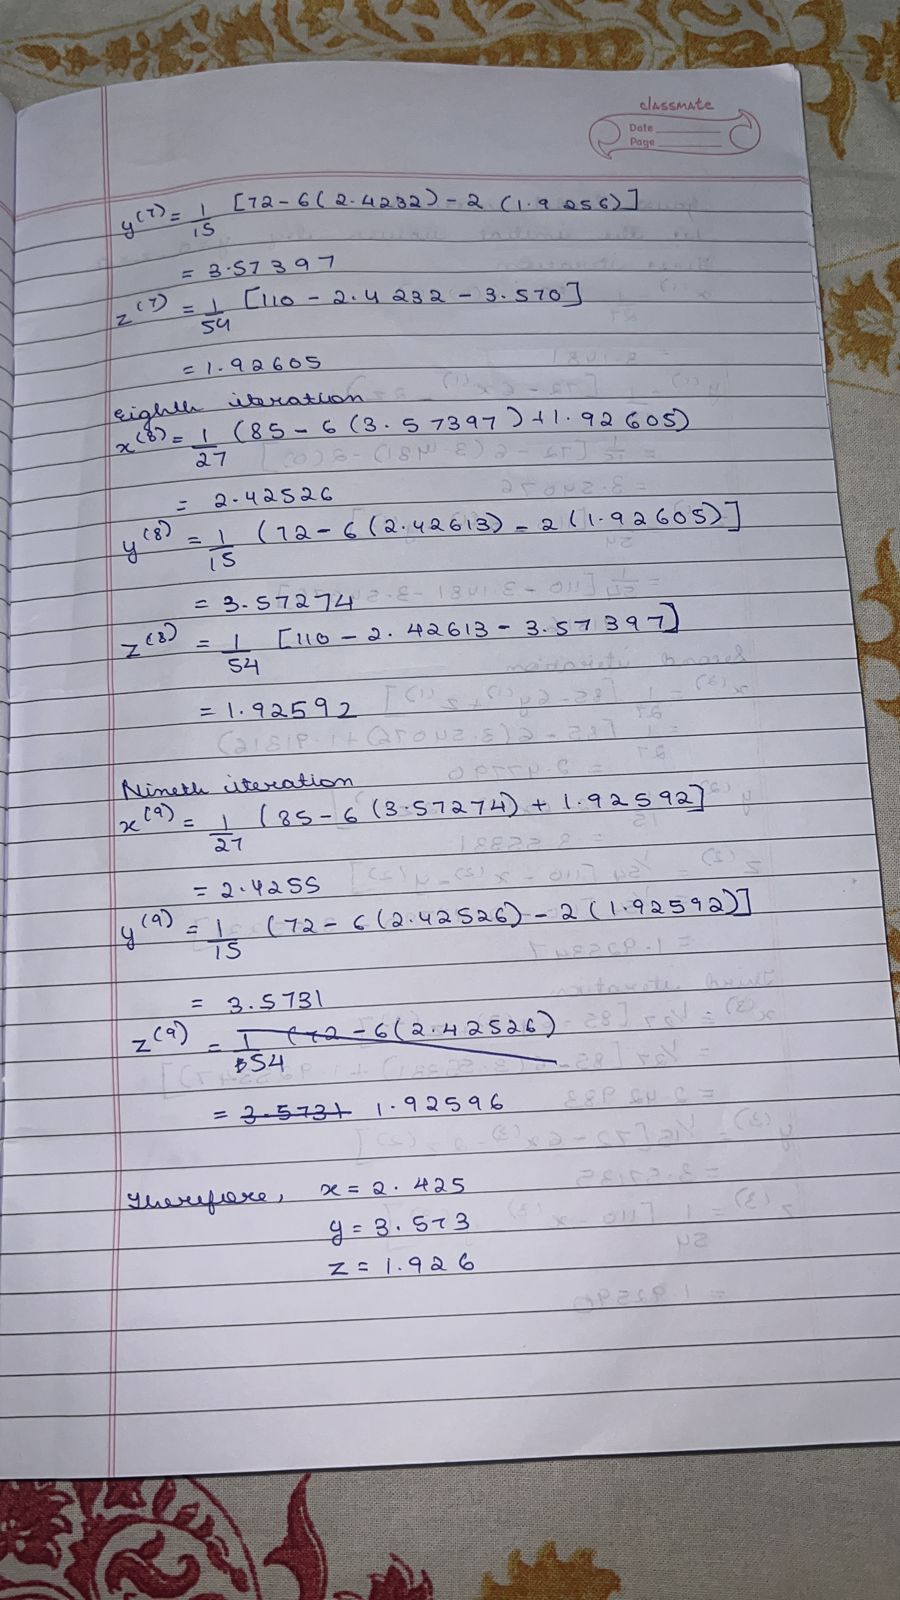 classmate
Date
Page
y^(7) = 1/15 [72 - 6(2.4232) - 2 (1.9256)]
= 3.57397
z^(7) = 1/54 [110 - 2.4232 - 3.570]
= 1.92605
Eighth iteration
x^(8) = 1/27 (85 - 6(3.57397) + 1.92605)
= 2.42526
y^(8) = 1/15 (72 - 6(2.42613) - 2(1.92605)]
= 3.57274
z^(8) = 1/54 [110 - 2.42613 - 3.57397]
= 1.92592
Nineth iteration
x^(9) = 1/27 (85 - 6(3.57274) + 1.92592]
= 2.4255
y^(9) = 1/15 (72 - 6(2.42526) - 2(1.92592)]
= 3.5731
z^(9) = 1/54 (72 - 6(2.42526)
= 3.5731 1.92596
Therefore, x = 2.425
y = 3.573
z = 1.926